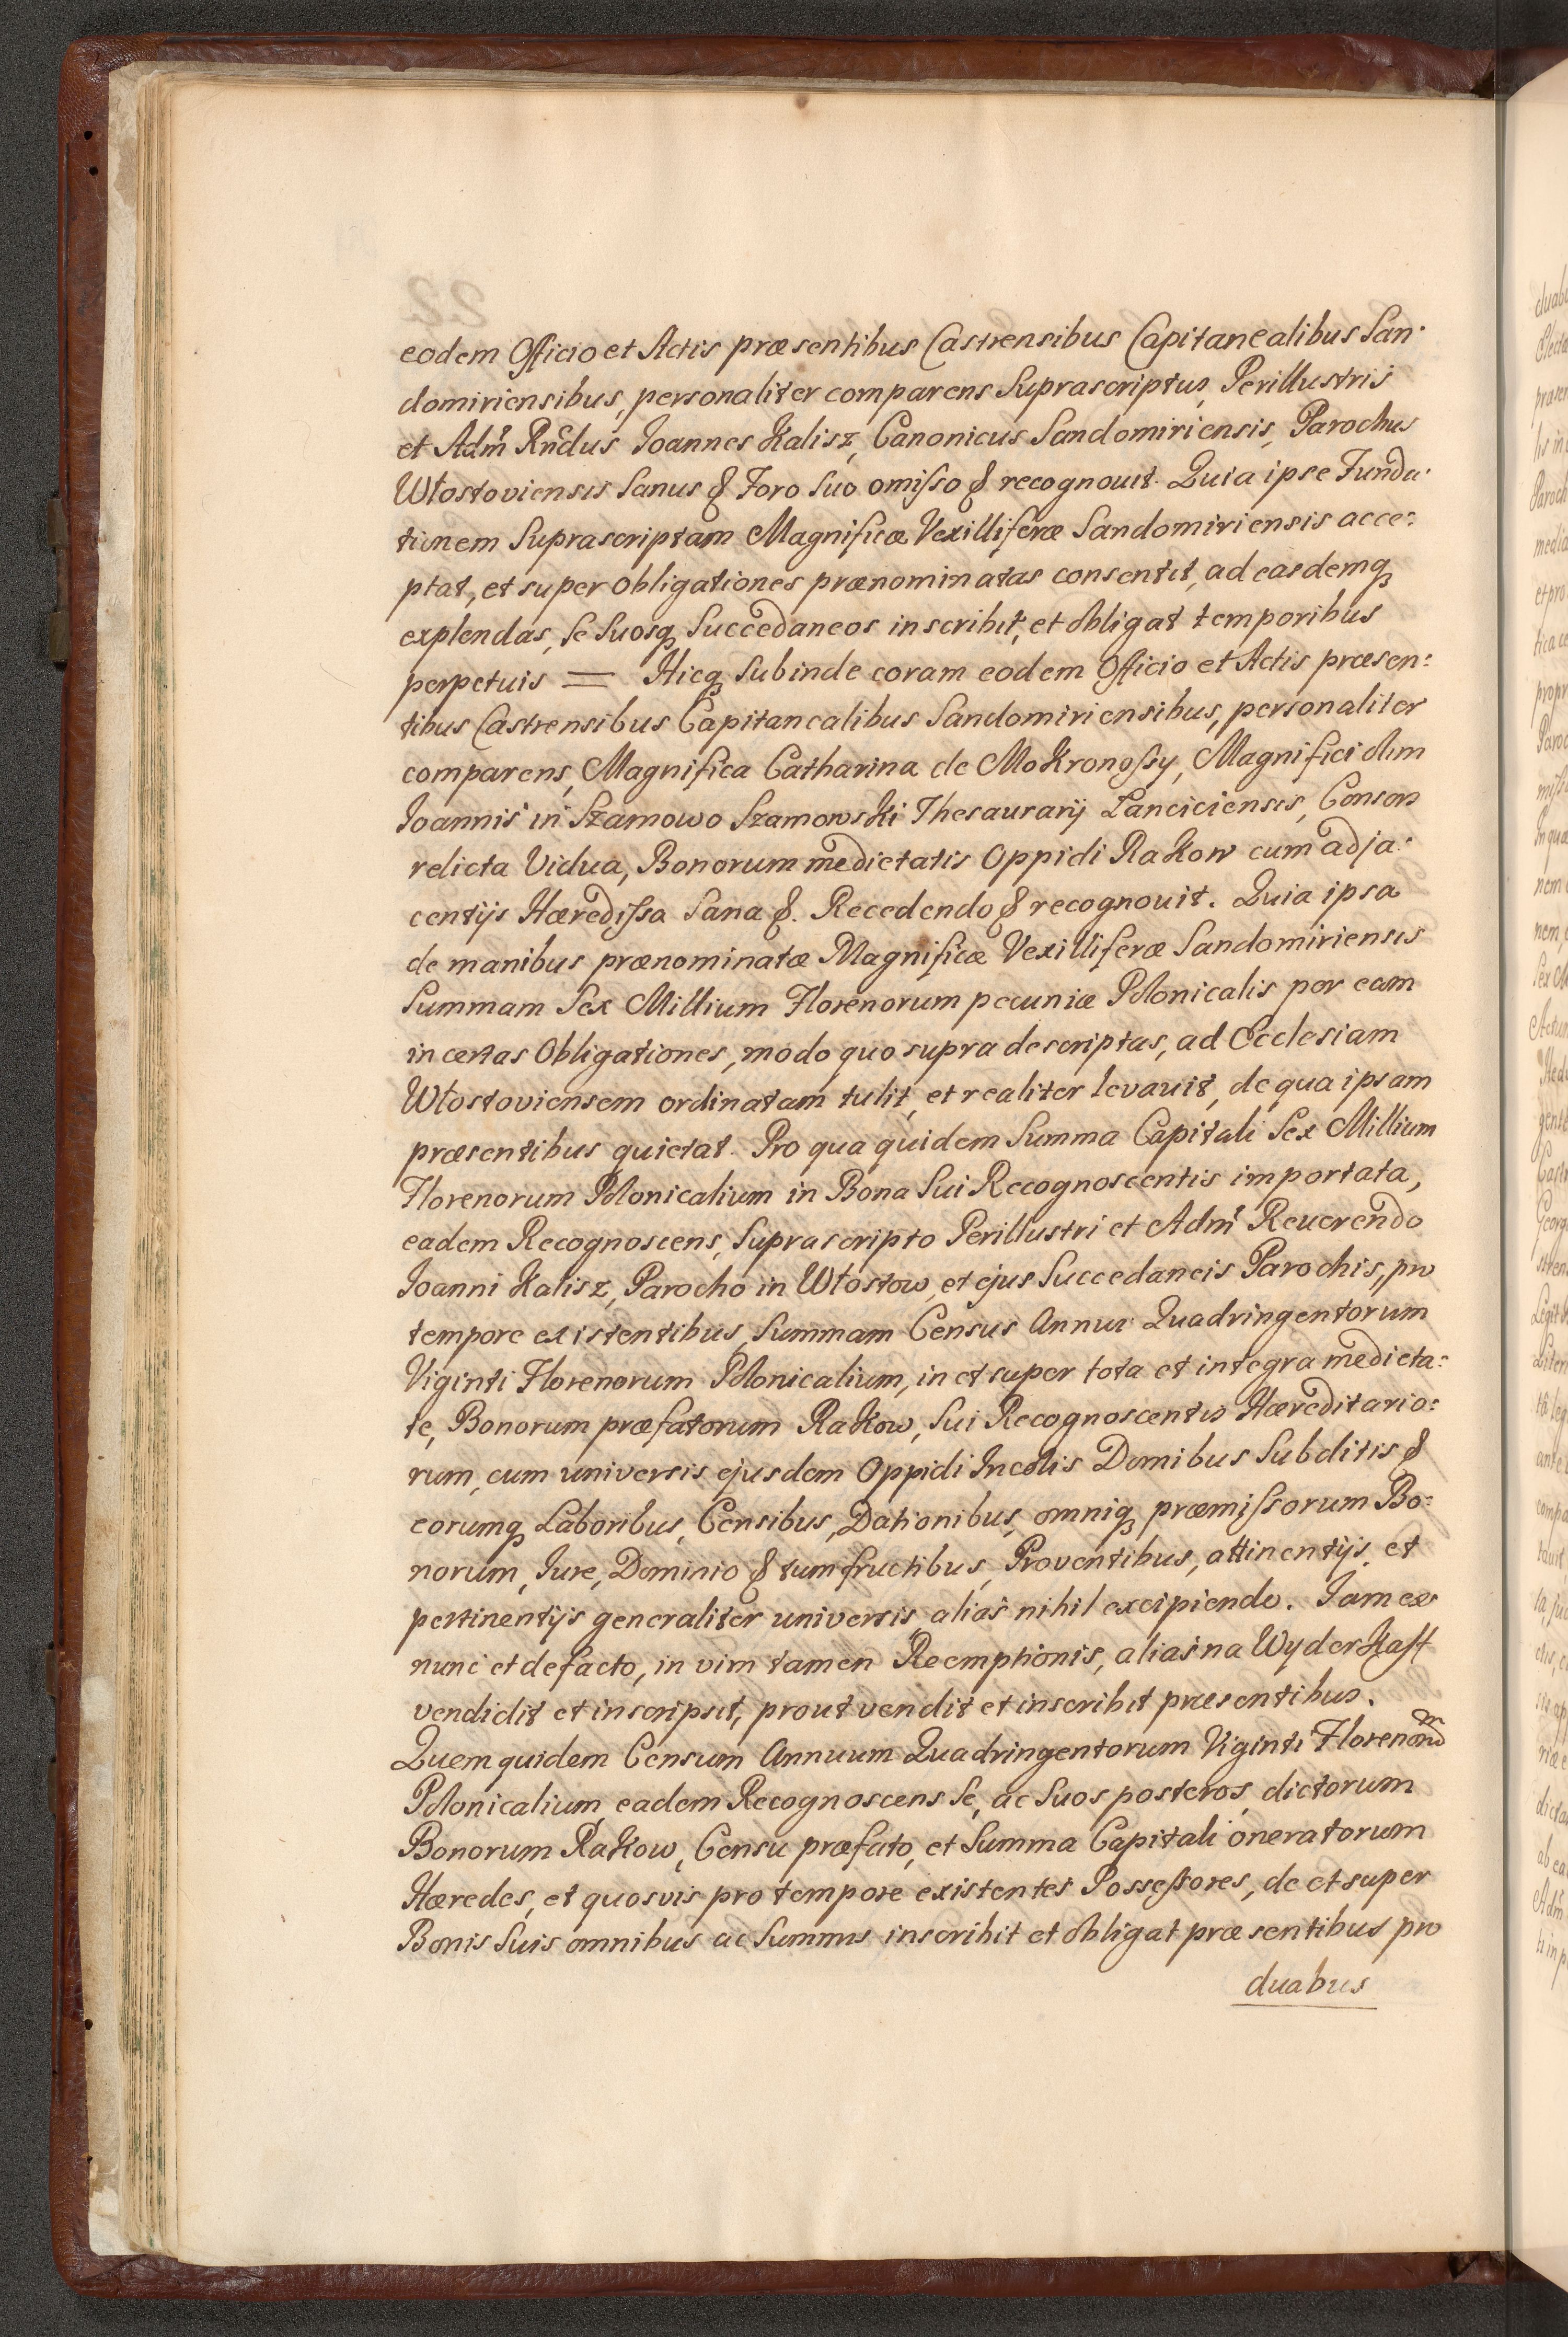 eodem Officio et Actis præsentibus Castrensibus Capitanealibus San:
domiriensibus, personaliter comparens Suprascriptus, Perillustris
et Adm̃ Rñdus Joannes Kalisz, Canonicus Sandomiriensis, Parochus
Włostoviensis Sanus & Foro Suo omisso & recognouit. Quia ipse Funda:
tionem Suprascriptam Magnificæ Vexilliferæ Sandomiriensis acce:
ptat, et super obligationes prænominatas consentit, ad easdemq
explendas, se Suosq Succedaneos inscribit, et obligat temporibus
perpetuis = Hicq Subinde coram eodem Officio et Actis præsen:
tibus Castrensibus Capitanealibus Sandomiriensibus, personaliter
comparens, Magnifica Catharina de Mokronossy, Magnifici olim
Joannis in Szamowo Szamowski Thesaurarij Lanciciensis, Consors
relicta Vidua, Bonorum medietatis Oppidi Rakow cum adja:
centijs Hæredissa Sana &. Recedendo & recognovit. Quia ipsa
de manibus prænominatæ Magnificæ Vexilliferæ Sandomiriensis
Summam Sex Millium Florenorum pecuniæ Polonicalis per eam
in certas Obligationes, modo quo supra descriptas, ad Ecclesiam
Włostoviensem ordinatam tulit, et realiter levavit, de qua ipsam
præsentibus quietat. Pro qua quidem Summa Capitali Sex Millium
Florenorum Polonicalium in Bona Sui Recognoscentis importata,
eadem Recognoscens, Suprascripto Perillustri et Adm̃ Reuerendo
Joanni Kalisz, Parocho in Włostow, et ejus Succedaneis Parochis, pro
tempore existentibus, Summam Census Annui Quadringentorum
Viginti Florenorum Polonicalium, in et super tota et integra medieta:
te, Bonorum præfatorum Rakow, Sui Recognoscentis Hæreditario:
rum, cum universis ejusdem Oppidi Incolis Domibus Subditis &
eorumq Laboribus, Censibus, Dationibus, omniq præmissorum Bo:
norum, Jure, Dominio & tum fructibus, Proventibus, attinentijs, et
pertinentijs generaliter universis alias nihil excipiendo. Jam ex
nunc et de facto, in vim tamen Reemptionis, alias na Wyderkaff
vendidit et inscripsit, prout vendit et inscribit præsentibus.
Quem quidem Censum Annuum Quadringentorum Viginti Florenorũ
Polonicalium eadem Recognoscens Se, ac Suos posteros, dictorum
Bonorum Rakow, Censu præfato, et Summa Capitali oneratorum
Hæredes, et quosvis pro tempore existentes Possessores, de et super
Bonis Suis omnibus ac Summis inscribit et obligat præsentibus pro
duabus